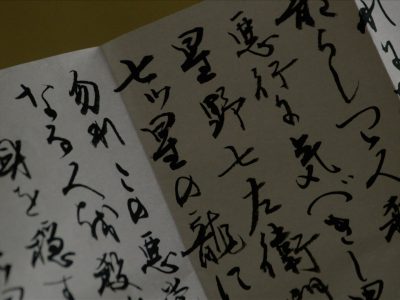 らしつゝ人殺
悪行に気づきし
星野七左衛門
七ツ星の龍に
勿れこの悪党
なる人を殺
を隠す